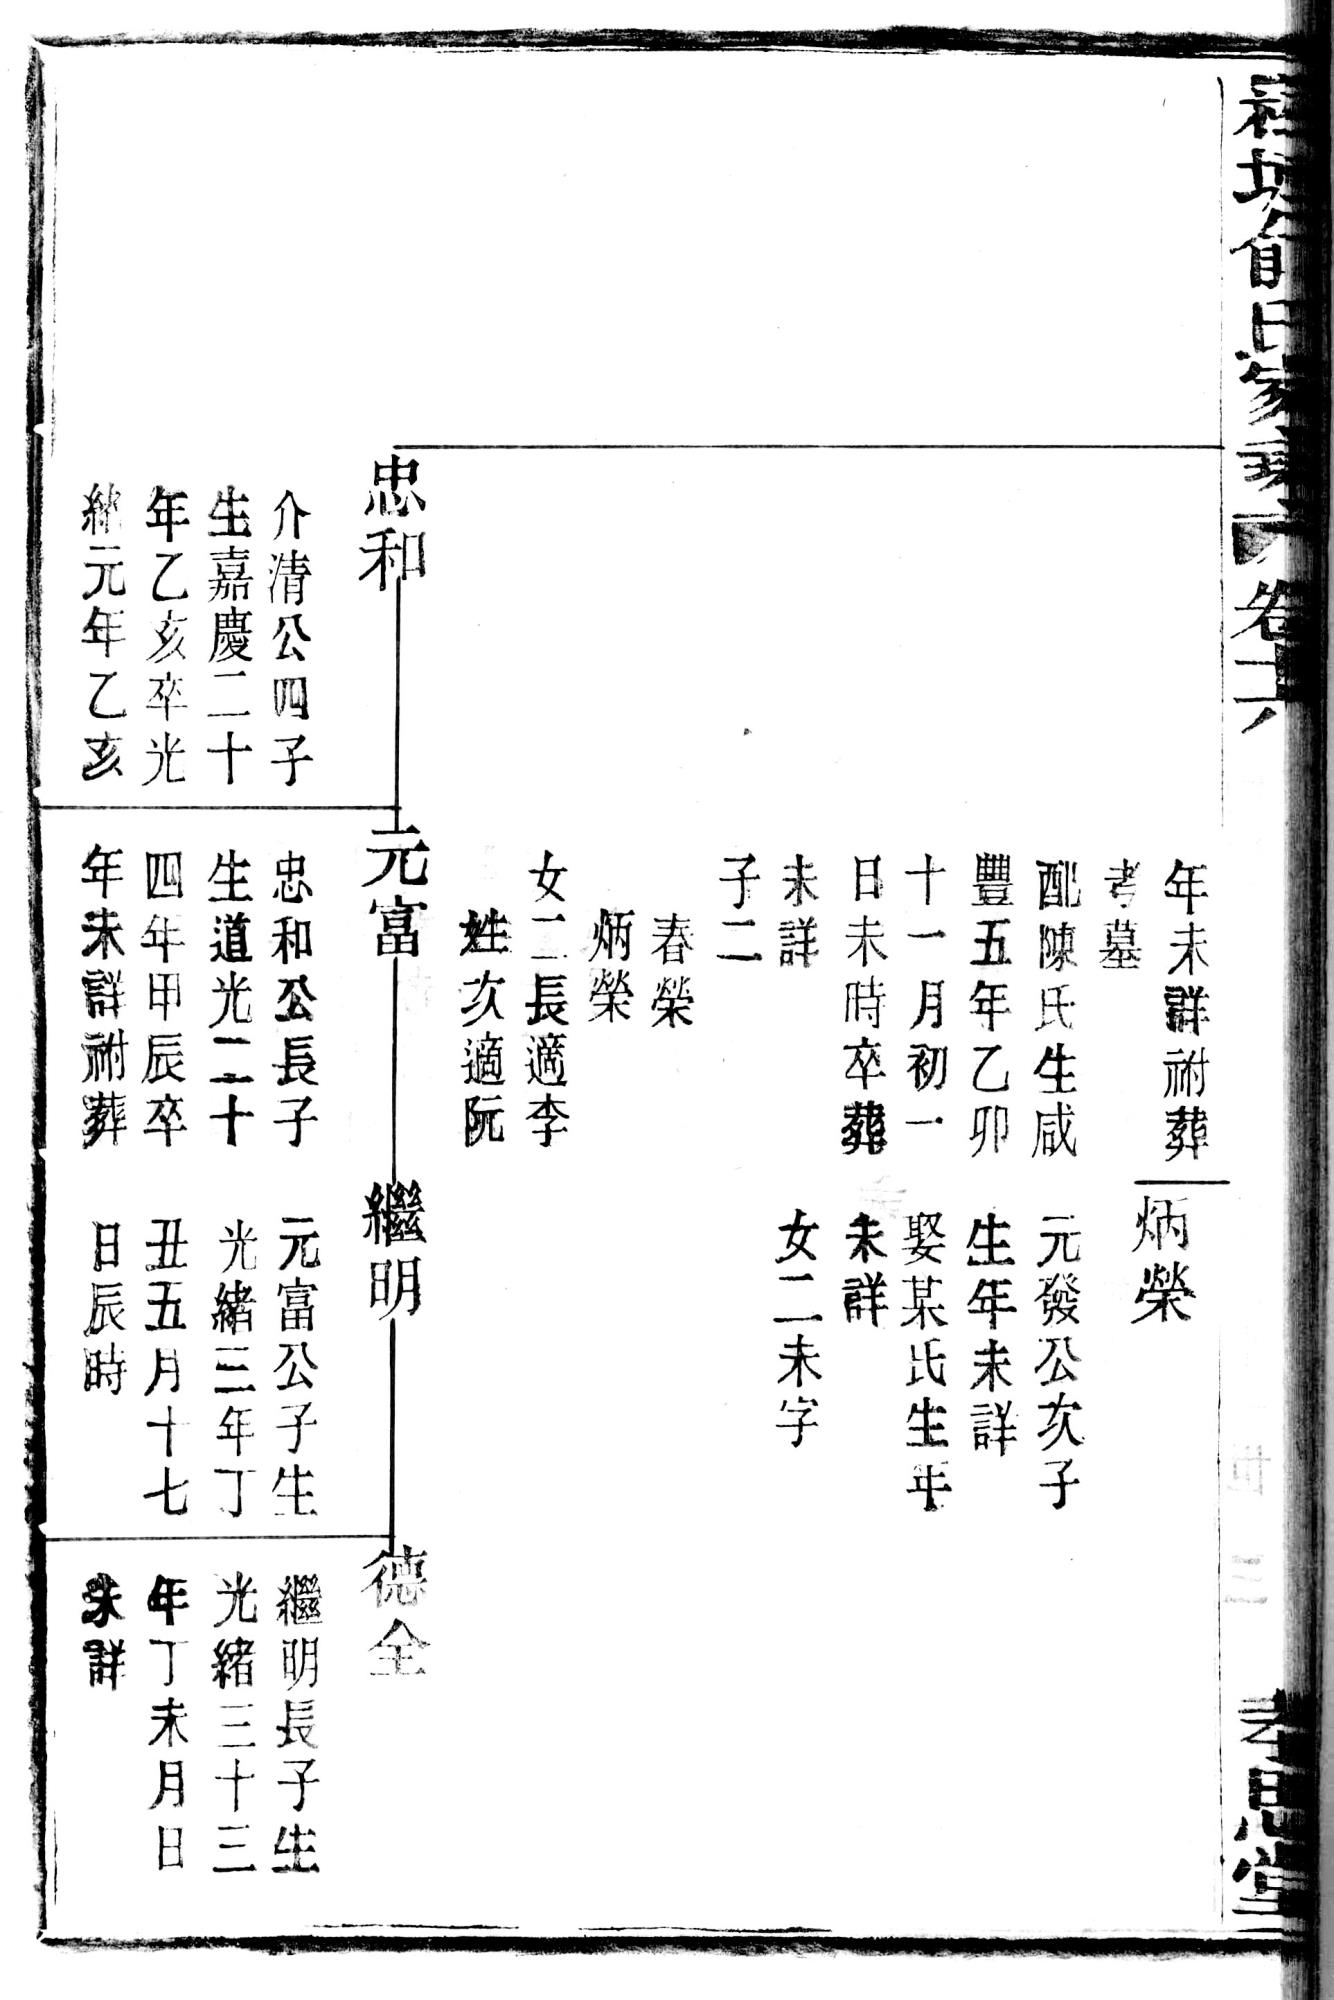 俞氏家乘 卷六
孝思堂
年未詳祔葬
考墓
配陳氏生咸
豐五年乙卯
十一月初一
日未時卒葬
未詳
子二
春榮
炳榮
女二長適李
姓次適阮
炳榮
元發公次子
生年未詳
娶某氏生年
未詳
女二未字
忠和
介清公四子
生嘉慶二十
年乙亥卒光
緒元年乙亥
元富
忠和公長子
生道光二十
四年甲辰卒
年未詳祔葬
繼明
元富公子生
光緒三年丁
丑五月十七
日辰時
德全
繼明長子生
光緒三十三
年丁未月日
未詳